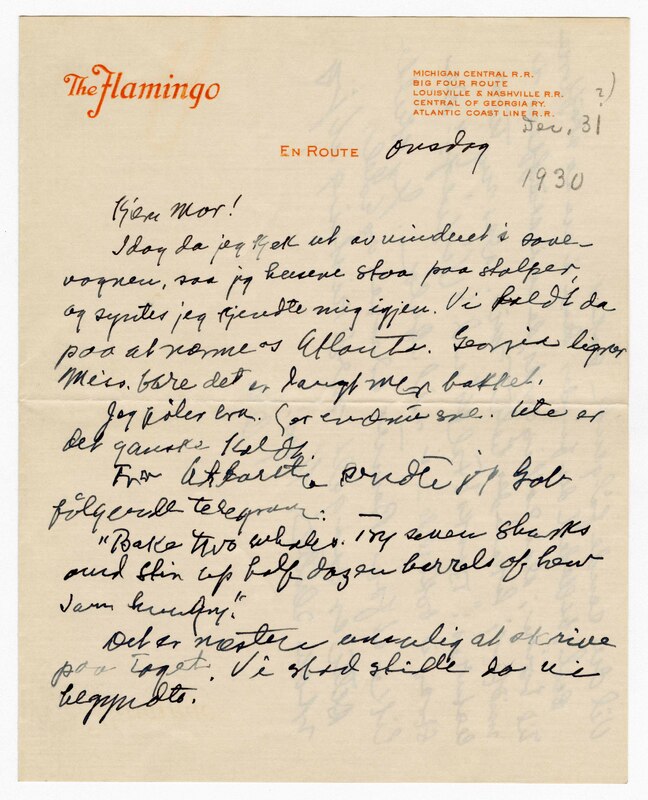 The Flamingo
MICHIGAN CENTRAL R.R.
BIG FOUR ROUTE
LOUISVILLE & NASHVILLE R.R.
CENTRAL OF GEORGIA RY.
ATLANTIC COAST LINE R.R.
?)
Dec. 31
EN ROUTE onsdag
1930
Kjere Mor!
Idag da jeg kjek ut av vinduet i sove-
vognen, saa jg husene staa paa stolper,
og syntes jeg kjendte mig igjen. Vi holdt da
paa at nærme os Atlanta. Georgia ligner
Miss. bare det er langt mer bakket.
Jeg föler bra. er endnu sne. Ute er
det ganske kaldt.
Fra Atlanta sendte jg Bob
fölgende telegram:
"Bake two whales. Fry seven sharks
and stir up half dozen barrels of
I am hungry."
Det er næsten umulig at skrive
paa toget. Vi stod stille da vi
begyndte.